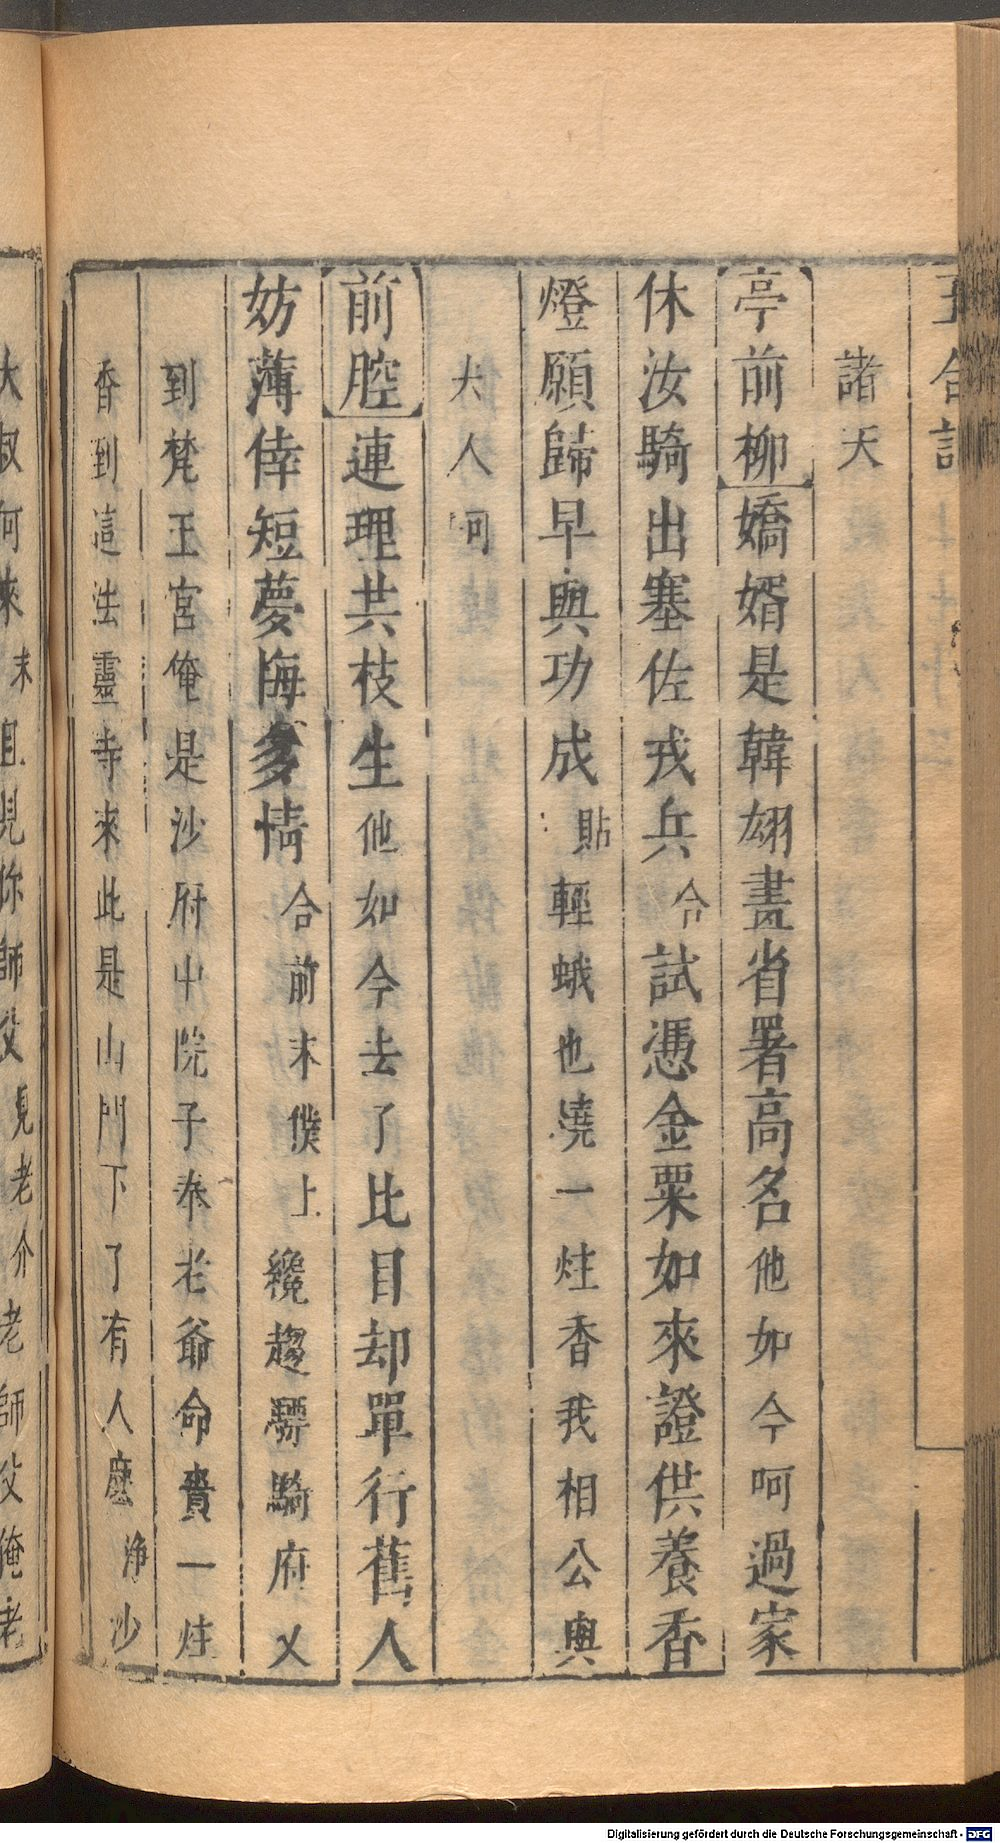 諸天
亭前柳嬌婿是韓翃畫省署高名他如今呵過家
休汝騎出塞佐戎兵合試憑金粟如來證供養香
燈願歸早與功成貼輕蛾也燒一炷香我相公與
夫人呵
前腔連理共枝生他如今去了比目却單行舊人
妨薄倖短夢悔多情合前末僕上纔趨驃騎府又
到梵王宮俺是沙府中院子奉老爺命賫一炷
香到這法靈寺來此是山門下了有人麽淨沙
Digitalisierung gefördert durch die Deutsche Forschungsgemeinschaft - DFG